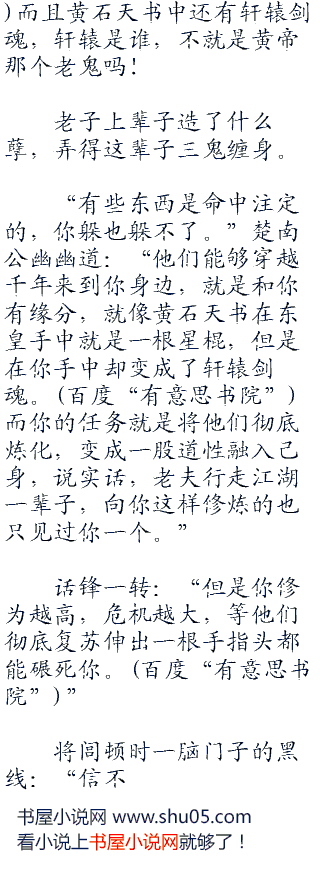 )而且黄石天书中还有轩辕剑
魂，轩辕是谁，不就是黄帝
那个老鬼吗！
老子上辈子造了什么
孽，弄得这辈子三鬼缠身。
“有些东西是命中注定
的，你躲也躲不了。”楚南
公幽幽道：“他们能够穿越
千年来到你身边，就是和你
有缘分，就像黄石天书在东
皇手中就是一根星棍，但是
在你手中却变成了轩辕剑
魂。(百度“有意思书院”)
而你的任务就是将他们彻底
炼化，变成一股道性融入己
身，说实话，老夫行走江湖
一辈子，向你这样修炼的也
只见过你一个。”
话锋一转：“但是你修
为越高，危机越大，等他们
彻底复苏伸出一根手指头都
能碾死你。(百度“有意思书
院”)”
将闾顿时一脑门子的黑
线：“信不
书屋小说网 www.shu05.com
看小说上书屋小说网就够了！